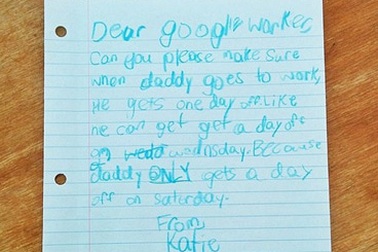 Dear google worker,
Can you please make sure
when daddy goes to work,
He gets one day off. Like
he can get get a day off
on wedd wednsday. Because
daddy ONLY gets a day
off on saturday.
From,
Katie